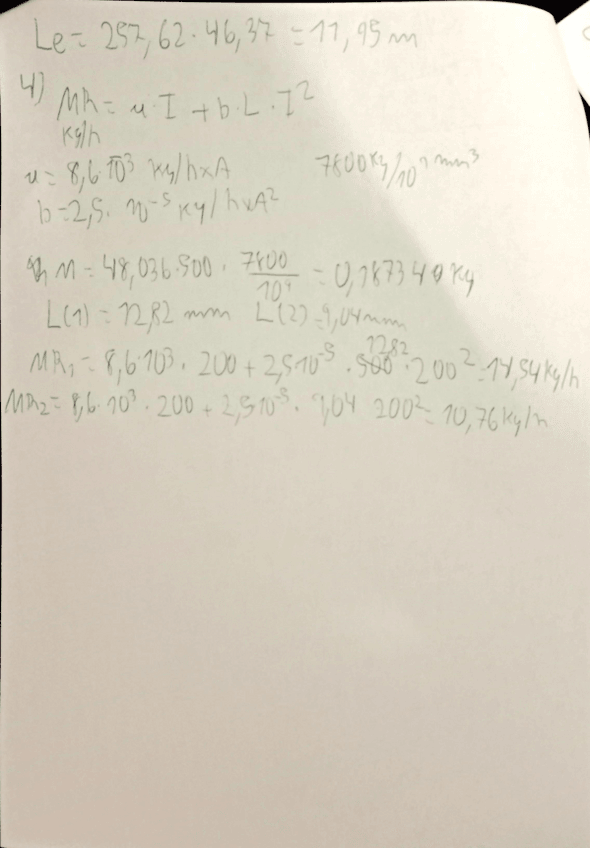 Le = 257,62 · 46,37 = 11,95 m
4) MR = a · I + b · L · I²
kg/h
a = 8,6·10³ kg/h×A 7800 kg/10⁹ mm³
b = 2,5 · 10⁻⁵ kg/h×A²
M = 48,036·500 · 7800/10⁹ = 0,187340 kg
L(1) = 12,82 mm L(2) = 9,04 mm
MR₁ = 8,6·10³ · 200 + 2,5·10⁻⁵ · 12,82 · 200² = 14,54 kg/h
MR₂ = 8,6·10³ · 200 + 2,5·10⁻⁵ · 9,04 200² = 10,76 kg/h